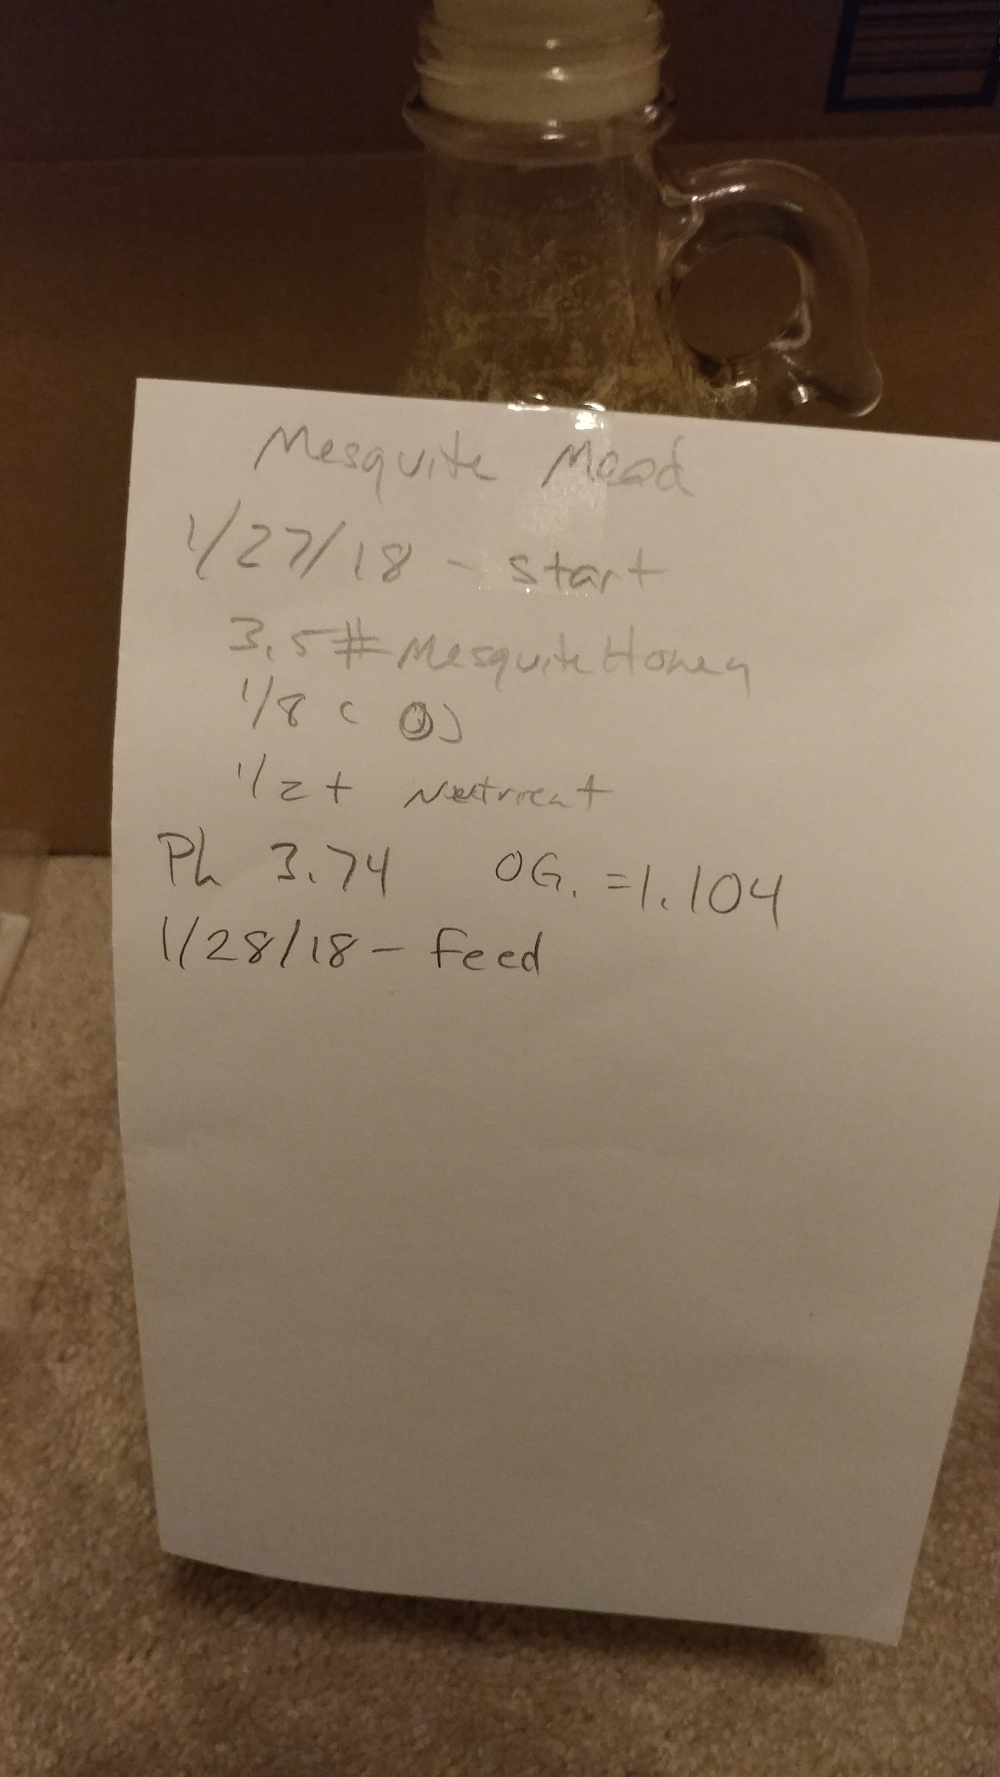 Mesquite Mead
1/27/18 - start
3.5# Mesquite Honey
1/8 c OJ
1/2 t Neutrient
Ph 3.74 OG. =1.104
1/28/18 - Feed